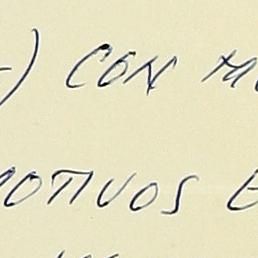 -) CON M
MOTIVOS E